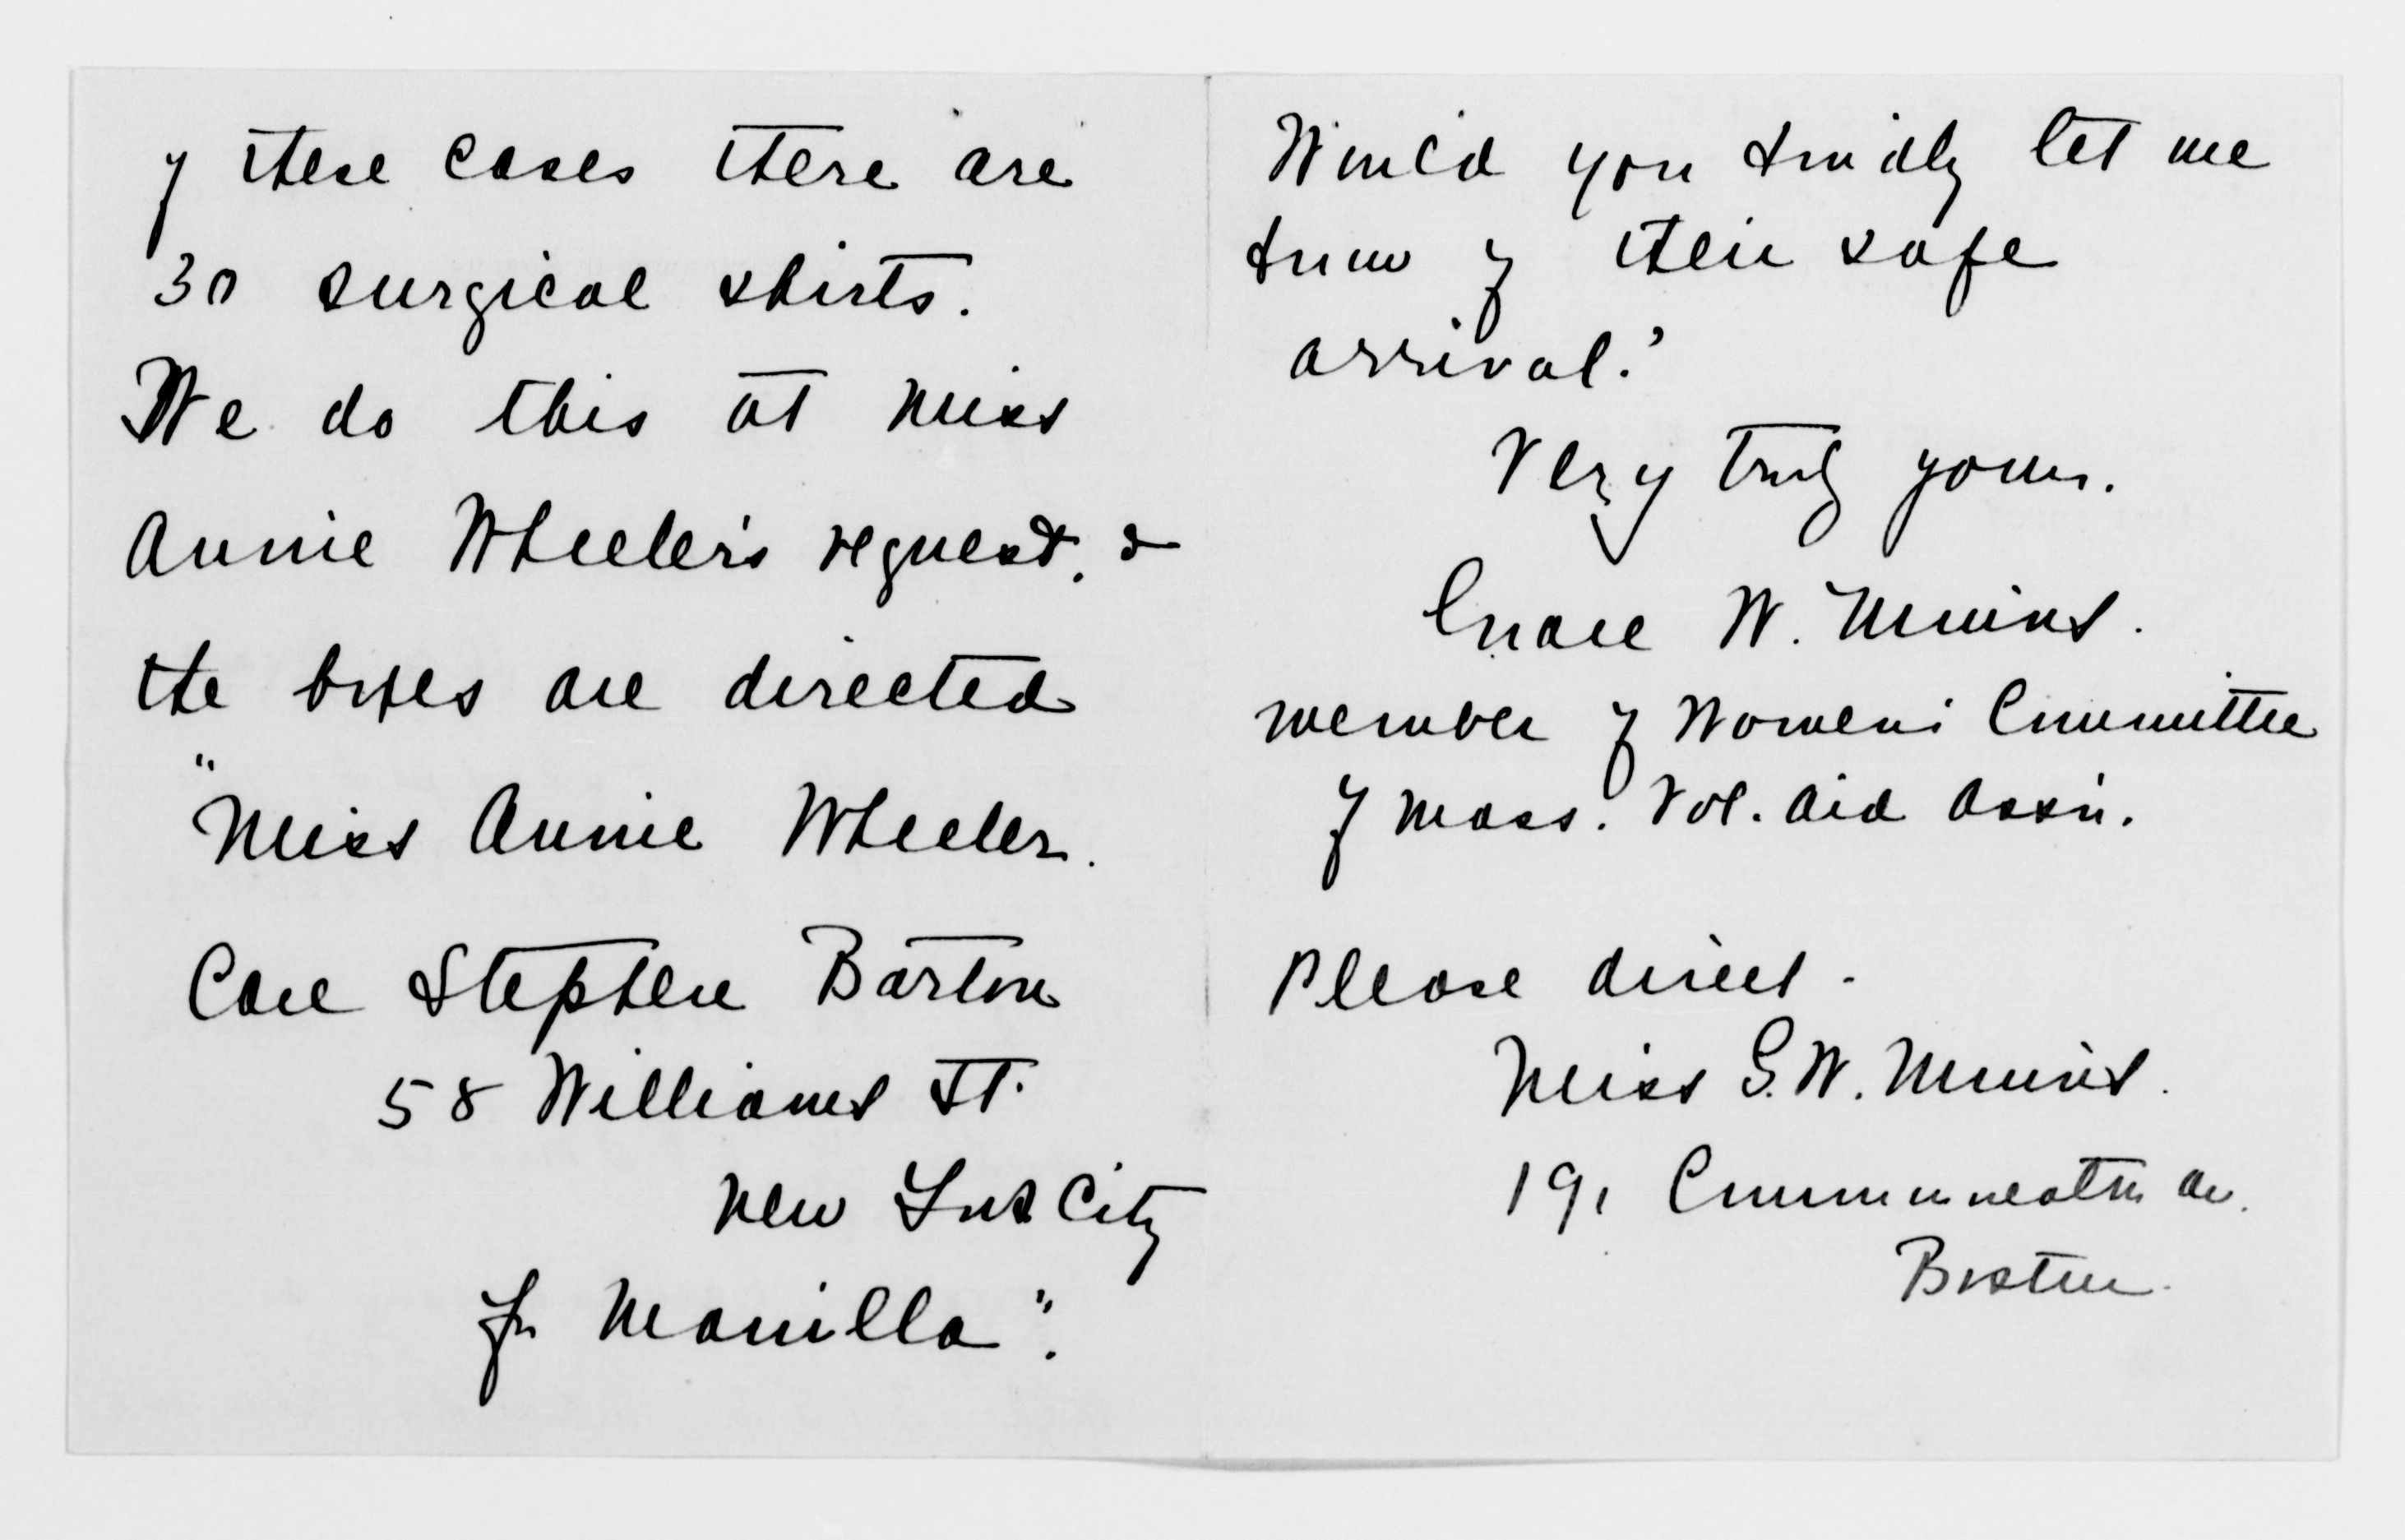 of these cases there are
30 surgical shirts.
We do this at Miss
Annie Wheeler's request, &
the boxes are directed
"Miss Annie Wheeler.
Care Stephen Barton
58 Williams St.
New York City
for Manilla".
Would you kindly let me
know of their safe
arrival?
Very truly yours.
Grace W. Minns.
member of Women's Committee
of Mass. Vol. Aid Assn.
Please direct -
Miss G. W. Minns.
191 Commonwealth Av.
Boston.